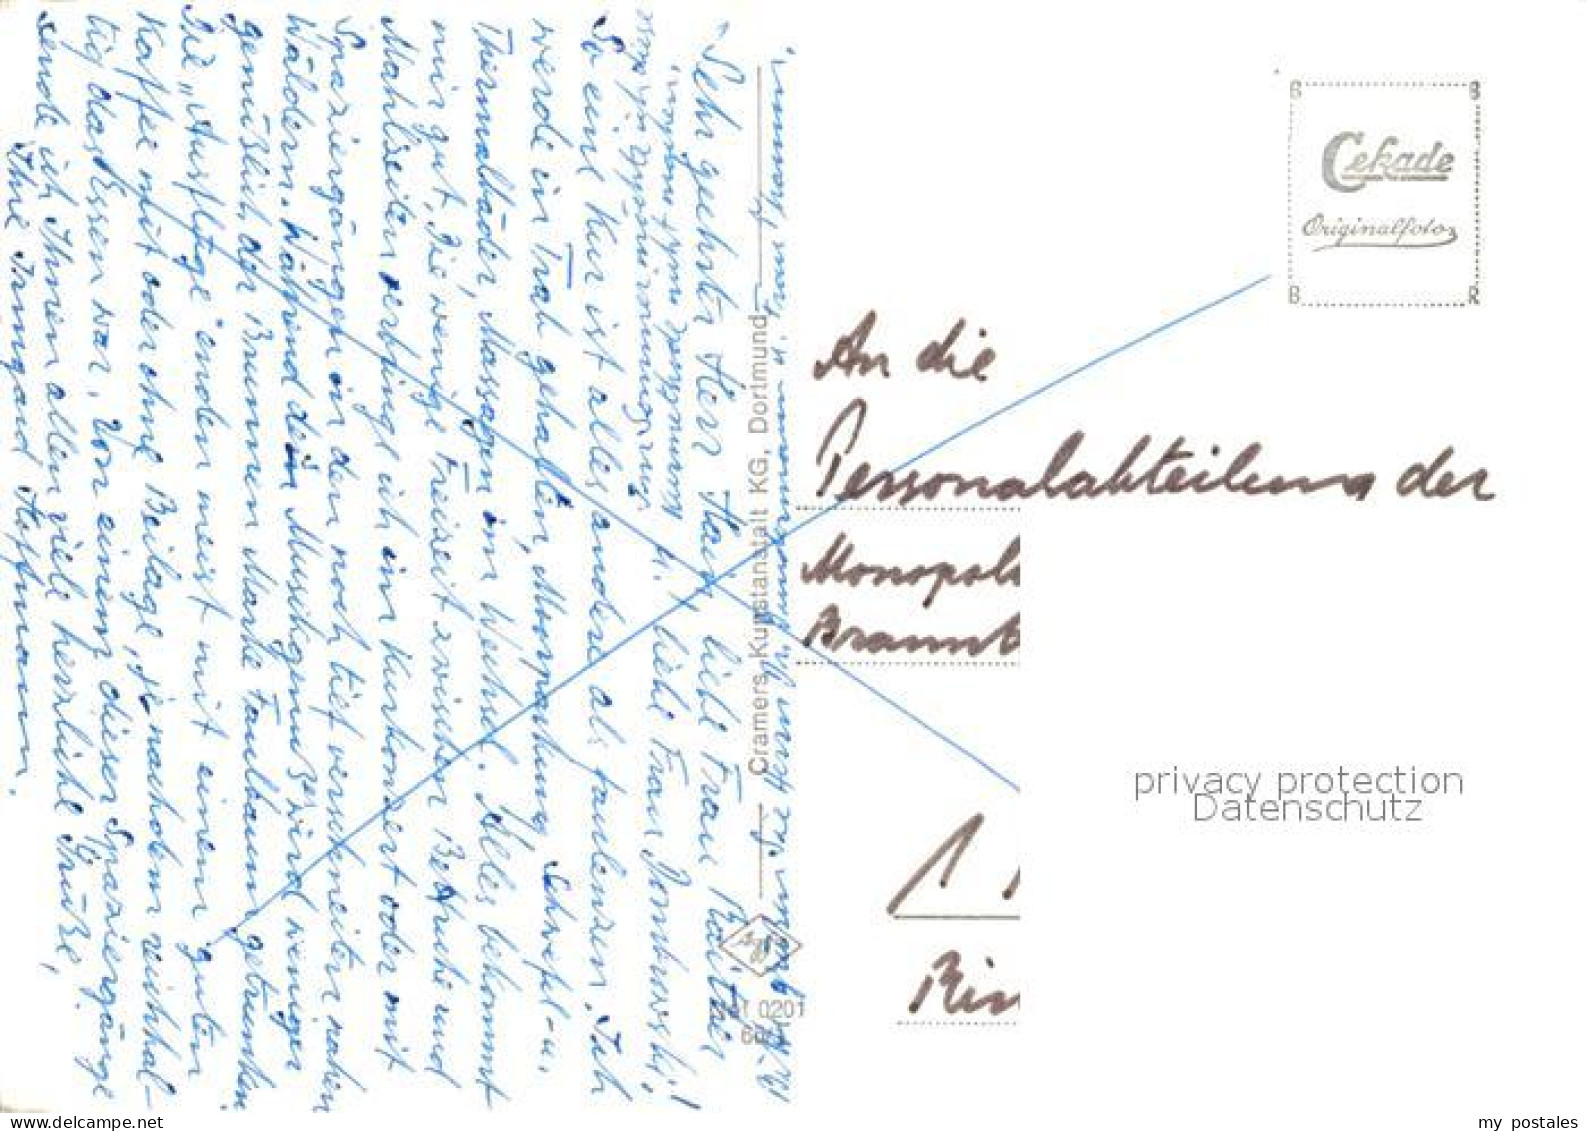 Sehr geehrter Herr Hain, liebe Frau Reitger
, liebe Frau Dombrowski!
So eine Kur ist alles andere als faulenzen. Ich
werde in Trab gehalten, Moorpackung, Schwefel- u.
Thermalbäder, Massagen im Wechsel. Alles bekommt
mir gut. Die wenige Freizeit zwischen Bettruhe und
Mahlzeiten verbringe ich im Kurkonzert oder mit
Spaziergängen in den noch tief verschneiten nahen
Wäldern. Während dem Musikgenuß wird weniger
genüßlich der Brunnen Marke Faulbaum getrunken.
Die „Ausflüge" enden meist mit einem guten
Kaffee mit oder ohne Beilage, je nachdem reichhal-
tig das Essen war. Von einem dieser Spaziergänge
sende ich Ihnen allen viele herzliche Grüße,
Ihre Irmgard Hoffmann.
Cramers Kunstanstalt KG, Dortmund
0201
Cekade
Originalfoto
An die
Personalabteilung der
Monopol
Brannt
1
Rin
privacy protection
Datenschutz
my postales